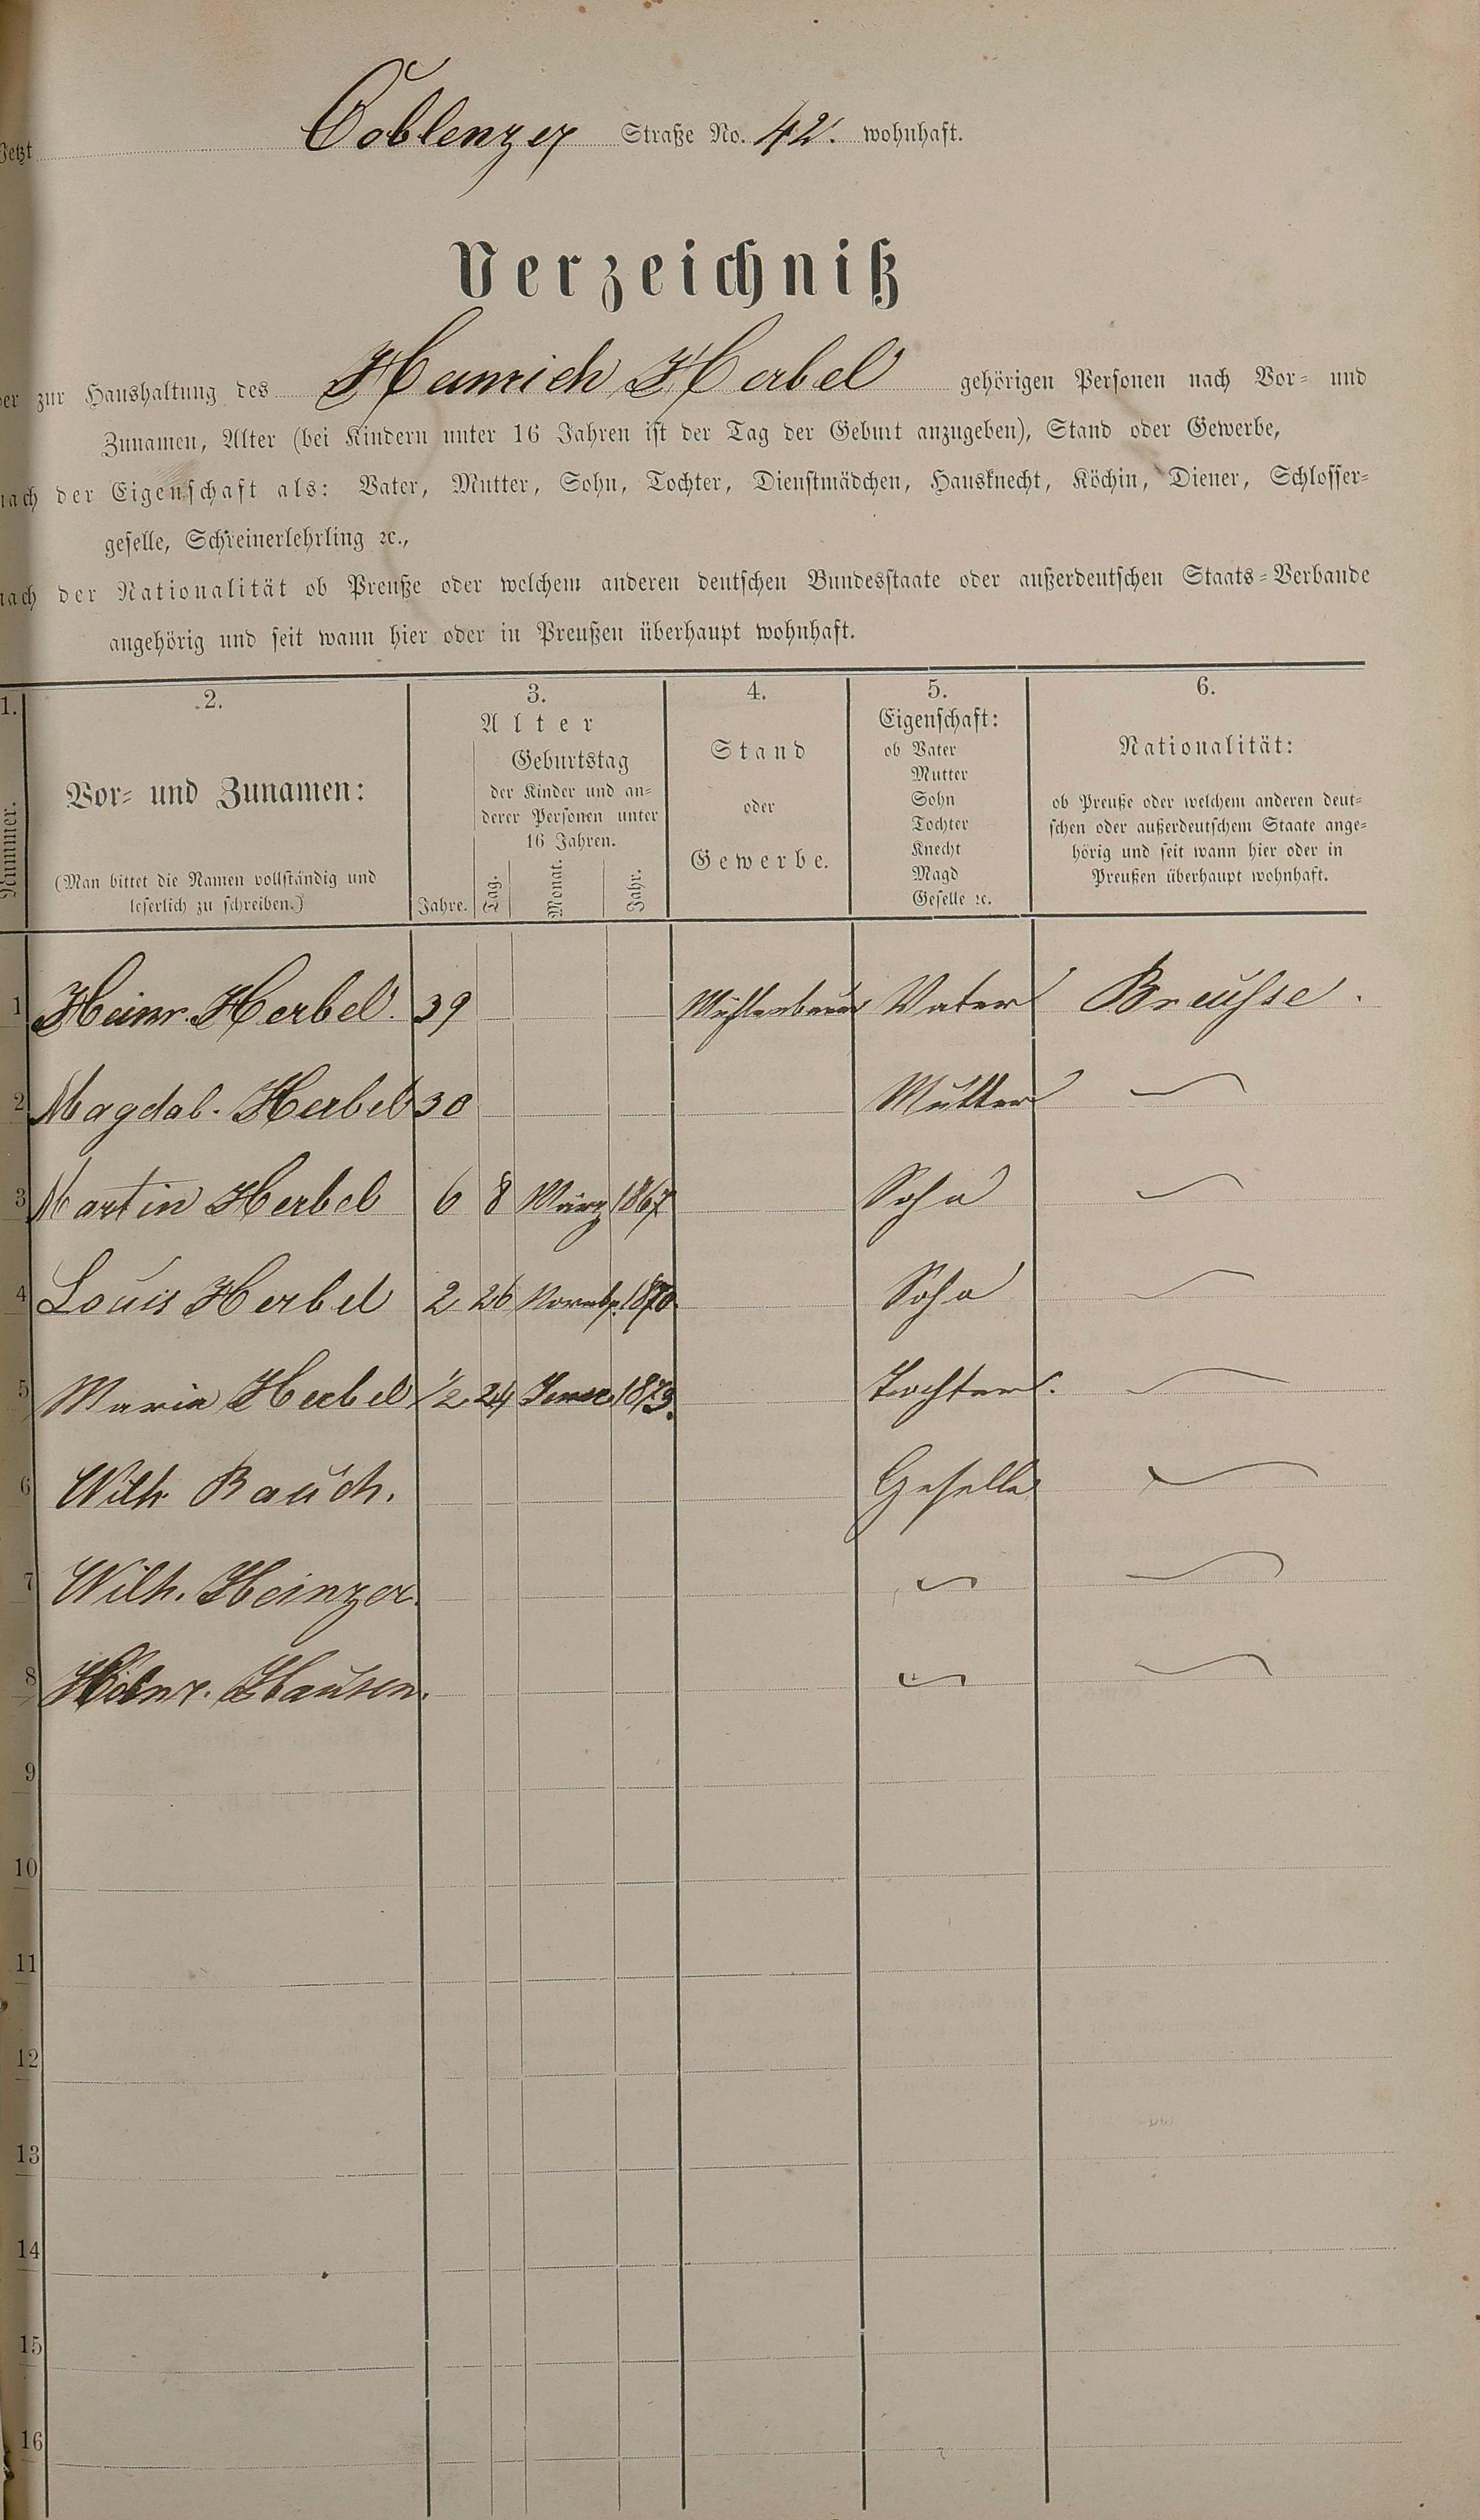 Jetzt Coblenzer Straße No. 42. wohnhaft.
Verzeichniß
der zur Haushaltung des Heinrich Herbel gehörigen Personen nach Vor- und
Zunamen, Alter (bei Kindern unter 16 Jahren ist der Tag der Geburt anzugeben), Stand oder Gewerbe,
nach der Eigenschaft als: Vater, Mutter, Sohn, Tochter, Dienstmädchen, Hausknecht, Köchin, Diener, Schlosser-
geselle, Schreinerlehrling ꝛc.,
nach der Nationalität ob Preuße oder welchem anderen deutschen Bundesstaate oder außerdeutschen Staats-Verbande
angehörig und seit wann hier oder in Preußen überhaupt wohnhaft.
1. 2. 3. 4. 5. 6.
Nummer.
Vor- und Zunamen:
(Man bittet die Namen vollständig und
leserlich zu schreiben.)
Alter
Jahre.
Geburtstag
der Kinder und an-
derer Personen unter
16 Jahren.
Tag. Monat. Jahr.
Stand
oder
Gewerbe.
Eigenschaft:
ob Vater
Mutter
Sohn
Tochter
Knecht
Magd
Geselle ꝛc.
Nationalität:
ob Preuße oder welchem anderen deut-
schen oder außerdeutschem Staate ange-
hörig und seit wann hier oder in
Preußen überhaupt wohnhaft.
1 Heinr. Herbel. 39 Mühlenbauer Vater Preusse.
2 Magdal. Herbel 30 Mutter
3 Martin Herbel 6 8 März 1867 Sohn
4 Louis Herbel 2 26 Novmbr. 1870. Sohn
5 Maria Herbel 1/2 24 1873. Tochter.
6 Wilh. Bauch. Geselle
7 Wilh. Heinzer.
8 Heinr. Hausen.
9
10
11
12
13
14
15
16